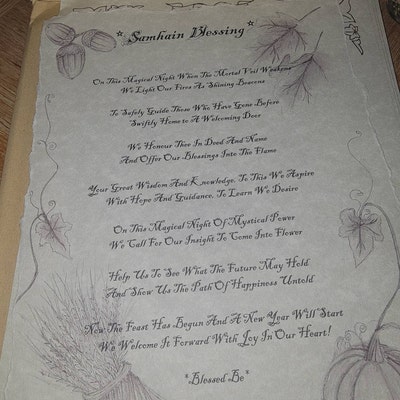 * Samhain Blessing *
On This Magical Night When The Mortal Veil Weakens
We Light Our Fires As Shining Beacons
To Safely Guide Those Who Have Gone Before
Swiftly Home to A Welcoming Door
We Honour Thee In Deed And Name
And Offer Our Blessings Into The Flame
Your Great Wisdom And Knowledge, To This We Aspire
With Hope And Guidance, To Learn We Desire
On This Magical Night Of Mystical Power
We Call For Our Insight To Come Into Flower
Help Us To See What The Future May Hold
And Show Us The Path Of Happiness Untold
Now The Feast Has Begun And A New Year Will Start
We Welcome It Forward With Joy In Our Heart!
*Blessed Be*